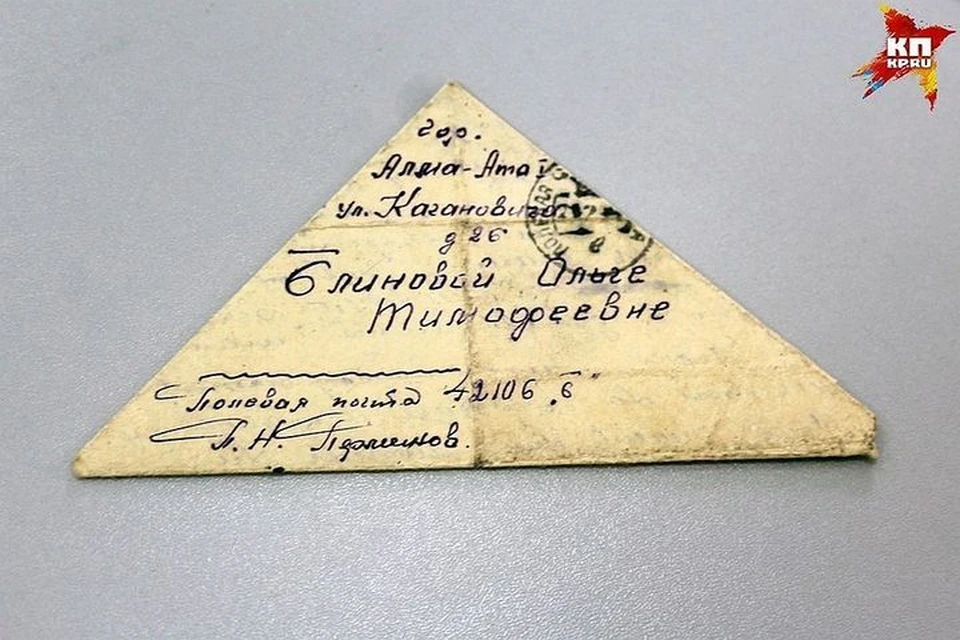 гор.
Алма-Ата
ул. Кагановича
д 26
Блиновой Ольге
Тимофеевне
Полевая почта 42106 „Б"
П. Н. Перминов.
ПОЛЕВАЯ
КП
KP.RU